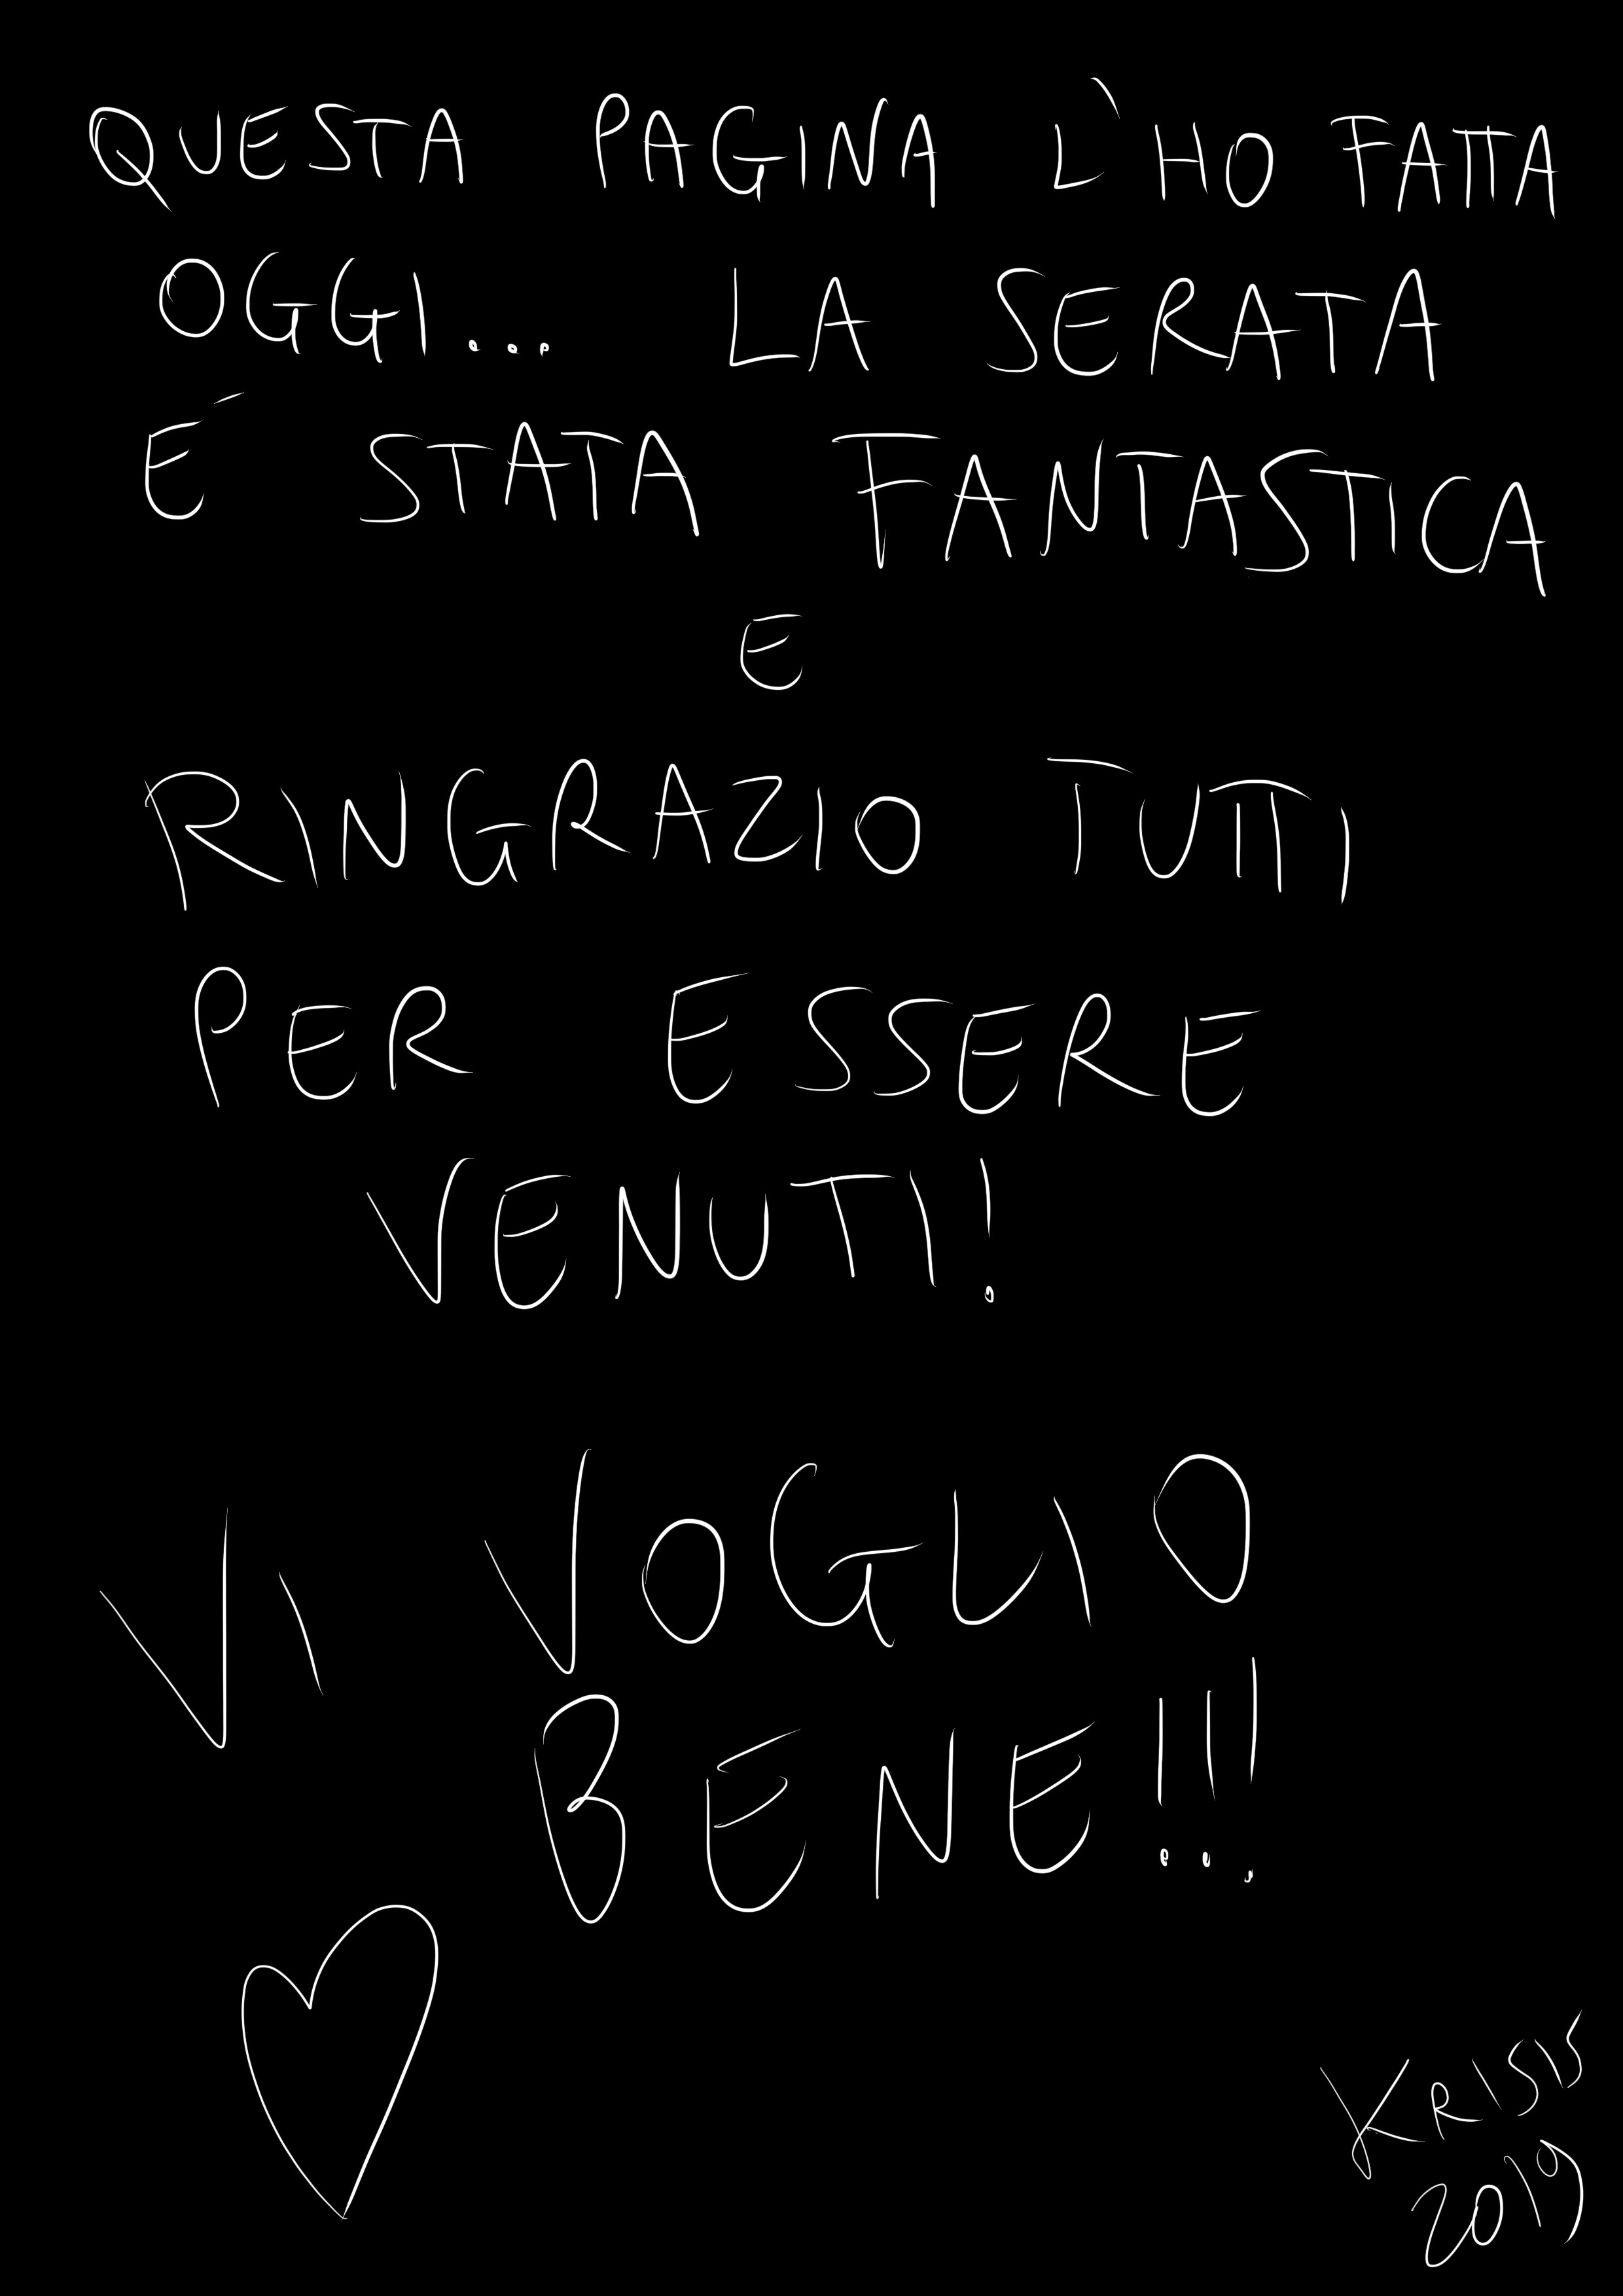 QUESTA PAGINA L'HO FATTA
OGGI... LA SERATA
É STATA FANTASTICA
E
RINGRAZIO TUTTI
PER ESSERE
VENUTI!
VI VOGLIO
BENE!!!
KRISIS
2019